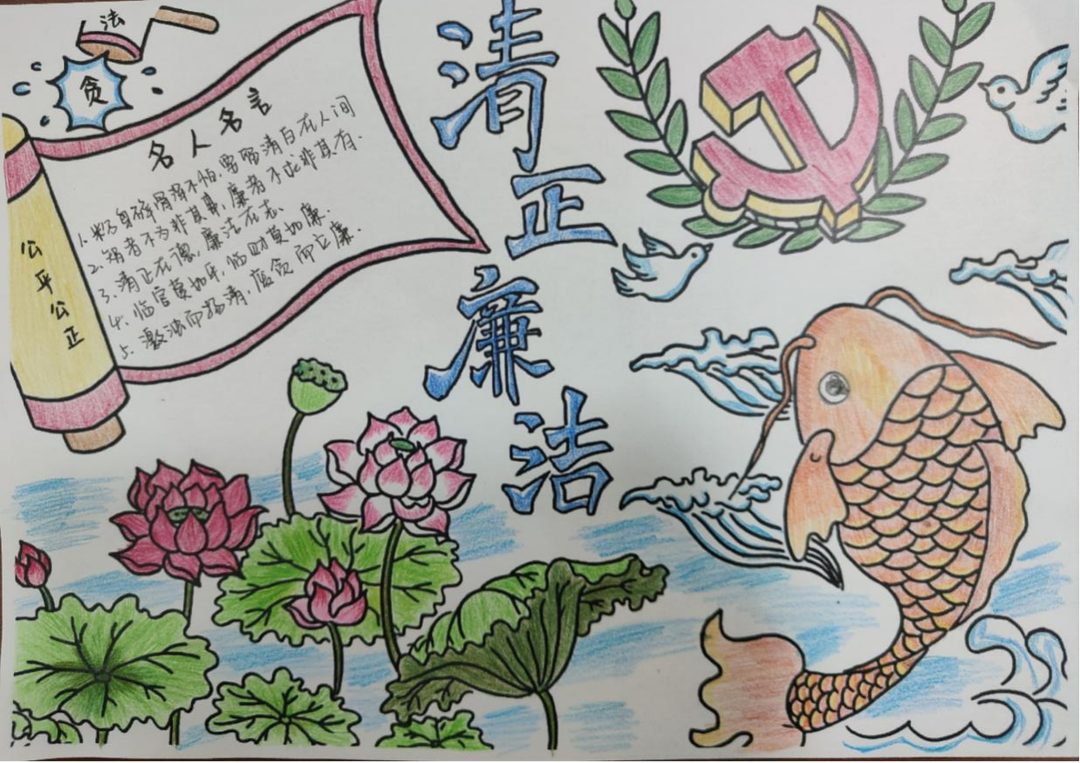 法
贪
名人名言
1、粉身碎骨浑不怕，要留清白在人间
2、智者不为非其事，廉者不求非其有.
3、清正在德，廉洁在志.
4、临官莫如平，临财莫如廉.
5、激浊而扬清，废贪而立廉.
公平公正
清正廉洁